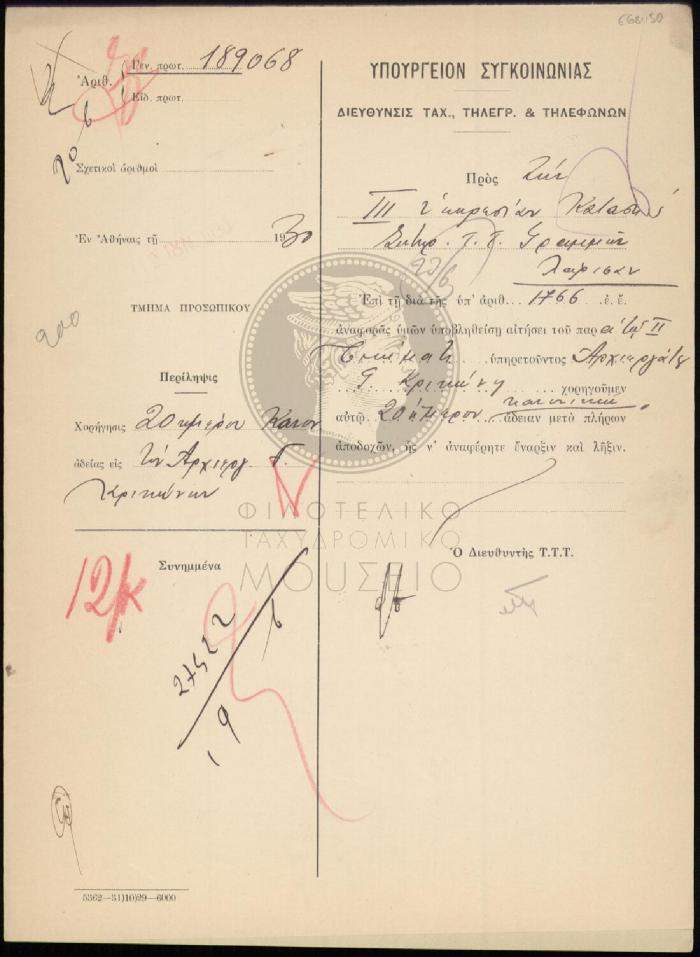 668150
Ἀριθ. Γεν. πρωτ. 189068
Εἰδ. πρωτ.
Σχετικοὶ ἀριθμοὶ
Ἐν Ἀθήναις τῇ 1930
200
ΤΜΗΜΑ ΠΡΟΣΩΠΙΚΟΥ
Περίληψις
Χορήγησις 20ημέρου Κανον
ἀδείας εἰς τὸν Ἀρχιεργ Γ.
Κριτικόν
Συνημμένα
12/κ
27522
19 6
5362—31)10)29—6000
ΥΠΟΥΡΓΕΙΟΝ ΣΥΓΚΟΙΝΩΝΙΑΣ
ΔΙΕΥΘΥΝΣΙΣ ΤΑΧ., ΤΗΛΕΓΡ. & ΤΗΛΕΦΩΝΩΝ
Πρὸς Τὴν
ΙΙΙ Ὑπηρεσίαν Κατασκ
Συντηρ. Τ. Τ. Γραμμῶν
Λάρισαν
Ἐπὶ τῇ διὰ τῆς ὑπ' ἀριθ. 1766 ἐ. ἔ.
ἀναφορᾶς ὑμῶν ὑποβληθείσῃ αἰτήσει τοῦ παρὰ τῷ ΙΙ
Τμήματι ὑπηρετοῦντος Ἀρχιεργάτου
Γ. χορηγοῦμεν
αὐτῷ 20ήμερον κανονικὴν ἄδειαν μετὰ πλήρων
ἀποδοχῶν, ἧς ν' ἀναφέρητε ἔναρξιν καὶ λῆξιν.
Ὁ Διευθυντὴς Τ.Τ.Τ.
ΦΙΛΟΤΕΛΙΚΟ
ΤΑΧΥΔΡΟΜΙΚΟ
ΜΟΥΣΕΙΟ